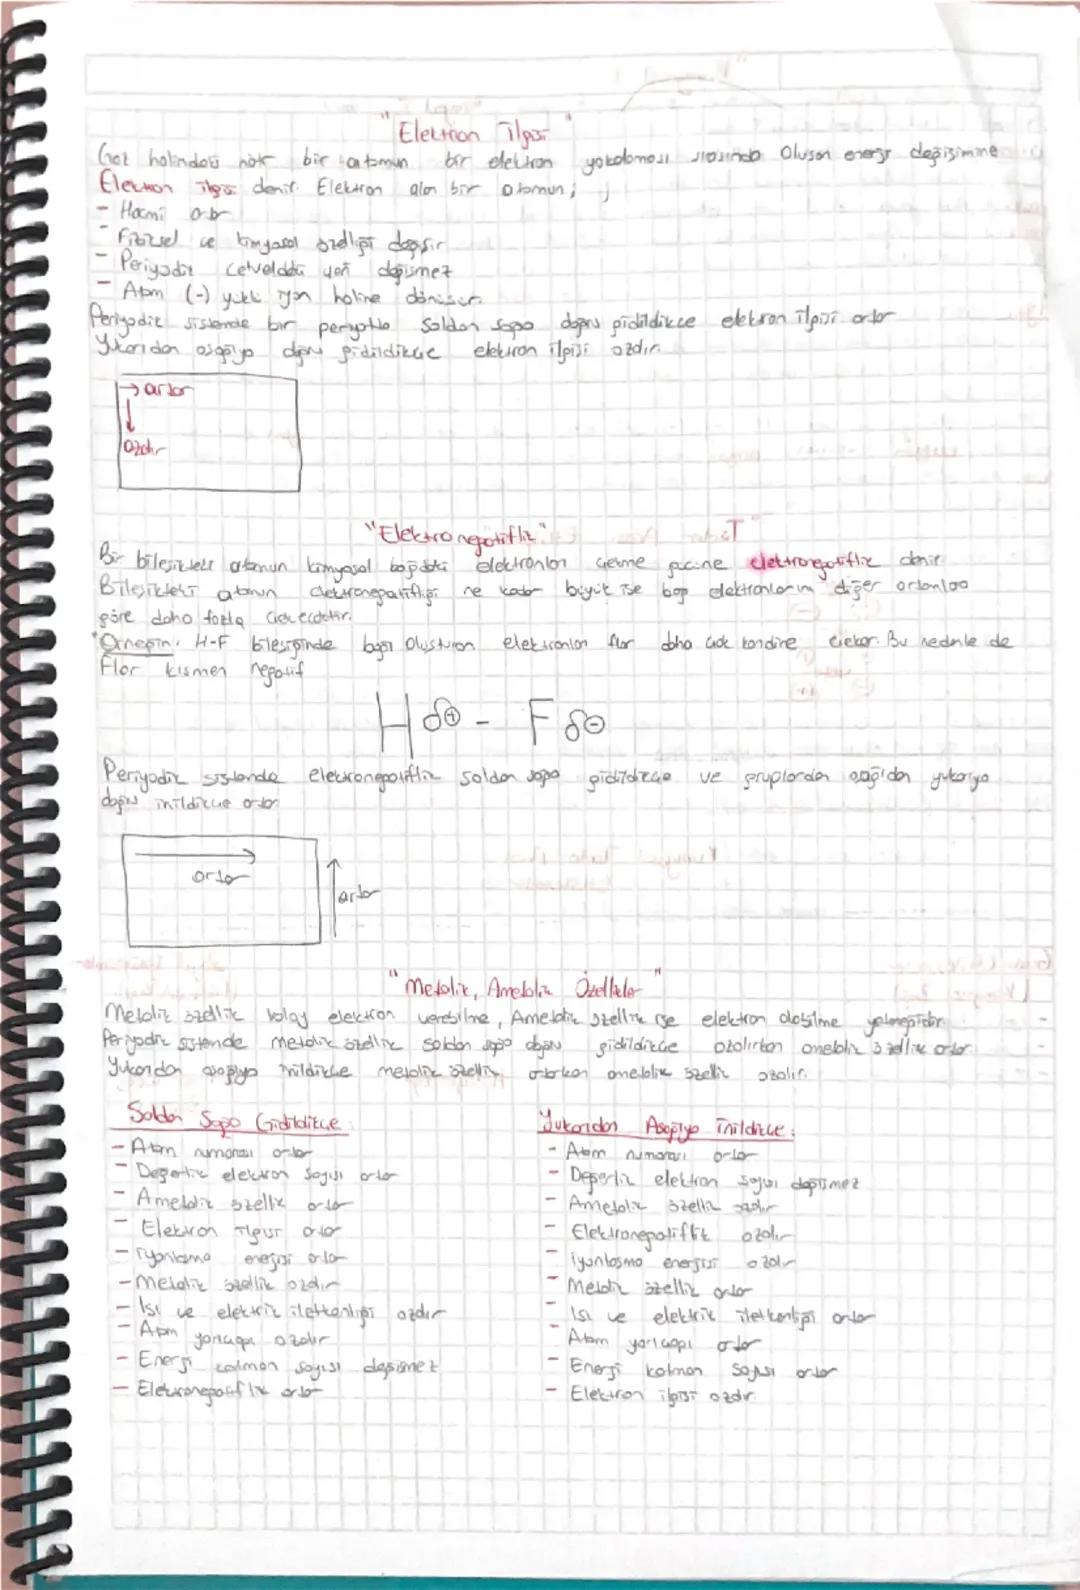 "Elektron İlgisi"
Gaz halindeki nötr bir atomun bir elektron yakalaması sırasında Oluşan enerji değişimine
Elektron ilgisi denir. Elektron alan bir atomun;
- Hacmi artar
- Fiziksel ve kimyasal özelliği değişir
- Periyodik cetveldeki yeri değişmez
- Atom (-) yüklü iyon haline dönüşür.
Periyodik sistemde bir periyotta Soldan sağa doğru gidildikçe elektron ilgisi artar
Yukarıdan aşağıya doğru gidildikçe elektron ilgisi azalır.
→ artar
↓
Azalır
"Elektronegatiflik"
Bir bileşikteki atomun kimyasal bağdaki elektronları çekme gücüne elektronegatiflik denir
Bileşikteki atomun elektronegatifliği ne kadar büyük ise bağ elektronlarını diğer
göre daha fazla çekecektir.
"Örneğin: H-F bileşiğinde bağı Oluşturan elektronları flor daha çok kendine çeker. Bu nedenle de
Flor kısmen negatif
H δ⊕ - F δ⊖
Periyodik sistemde elektronegatiflik soldan sağa gidildikçe ve gruplardan aşağıdan yukarıya
doğru inildikçe artar
artar
artar
"Metalik, Ametalik Özellikler"
Metalik özellik kolay elektron verebilme, Ametalik özellik ise elektron alabilme yeteneğidir.
Periyodik sistemde metalik özellik soldan sağa doğru gidildikçe azalırken ametalik özellik artar.
Yukarıdan aşağıya inildikçe metalik özellik artarken ametalik özellik azalır.
Soldan Sağa Gidildikçe:
- Atom numarası artar
- Değerlik elektron sayısı artar
- Ametalik özellik artar
- Elektron ilgisi artar
- İyonlaşma enerjisi artar
- Metalik özellik azalır
- Isı ve elektrik iletkenliği azalır
- Atom yarıçapı azalır
- Enerji katman sayısı değişmez
- Elektronegatiflik artar
Yukarıdan Aşağıya İnildikçe:
- Atom numarası artar
- Değerlik elektron sayısı değişmez
- Ametalik özellik azalır
- Elektronegatiflik azalır
- İyonlaşma enerjisi azalır
- Metalik özellik artar
- Isı ve elektrik iletkenliği artar
- Atom yarıçapı artar
- Enerji katman sayısı artar
- Elektron ilgisi azalır